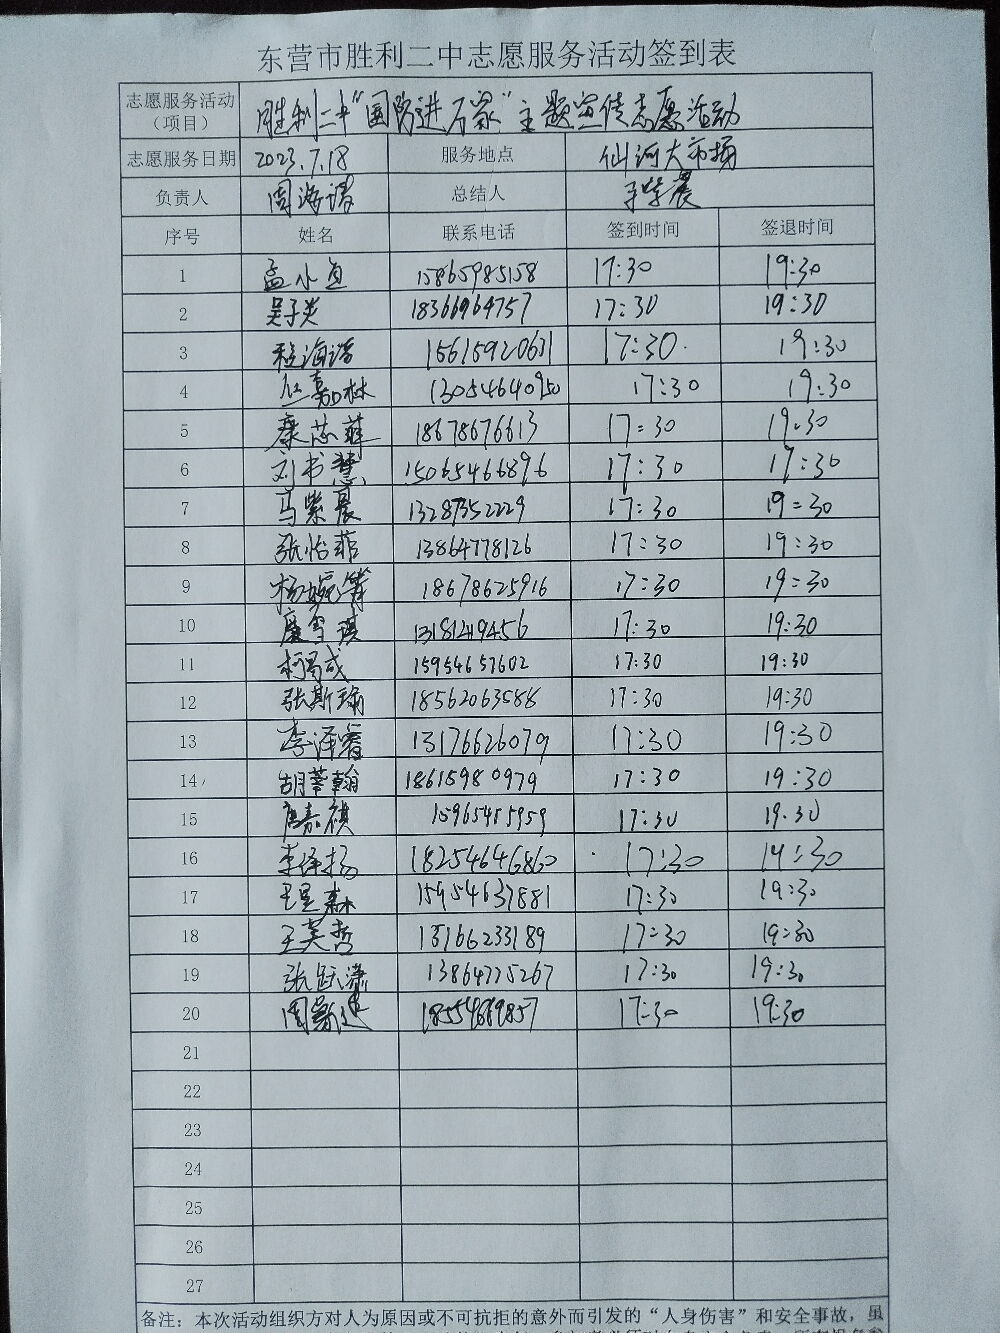 东营市胜利二中志愿服务活动签到表
志愿服务活动（项目） 胜利二中“国防进万家”主题宣传志愿活动
志愿服务日期 2023.7.18 服务地点 仙河大市场
负责人 周海诺 总结人
序号 姓名 联系电话 签到时间 签退时间
1 孟小鱼 15865985158 17:30 19:30
2 吴子炎 18366964757 17:30 19:30
3 程海诺 15615920631 17:30 19:30
4 嘉林 13054640950 17:30 19:30
5 康芯菲 18678676613 17:30 19:30
6 刘书慧 15065466896 17:30 17:30
7 马紫晨 13287352229 17:30 19:30
8 张怡菲 13864778126 17:30 19:30
9 杨婉箐 18678625916 17:30 19:30
10 雪琪 13181249456 17:30 19:30
11 柯 成 15954657602 17:30 19:30
12 张斯瑜 18562063588 17:30 19:30
13 李泽睿 13176626079 17:30 19:30
14 胡 翰 18615980979 17:30 19:30
15 嘉祺 15965455959 17:30 19:30
16 李泽扬 18254646860 17:30 19:30
17 王昱森 15954637881 17:30 19:30
18 王芙哲 13166233189 17:30 19:30
19 张钰潇 13864775267 17:30 19:30
20 周 17:30 19:30
21
22
23
24
25
26
27
备注：本次活动组织方对人为原因或不可抗拒的意外而引发的“人身伤害”和安全事故，虽